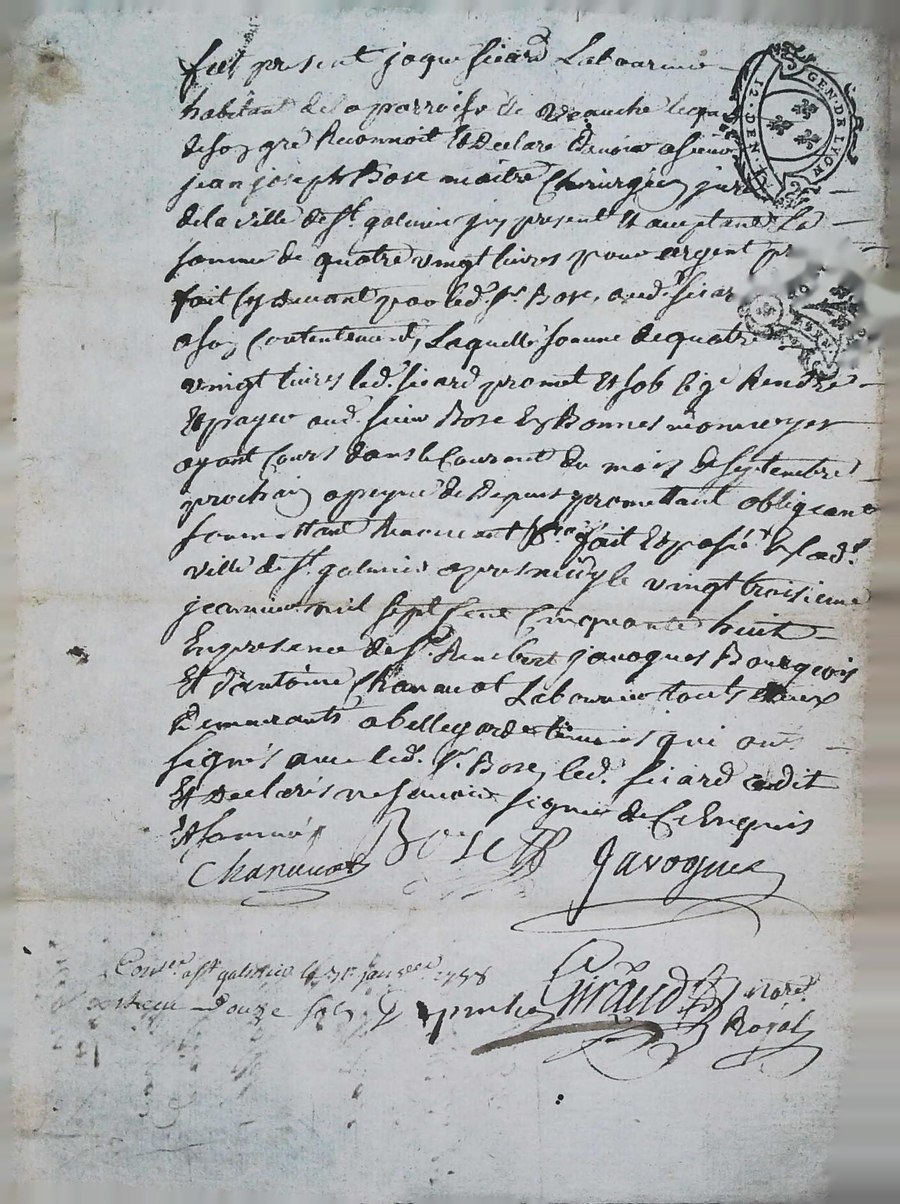 fut present jaque sicard Laboureur
habitant de la parroisse de
de son gré Reconnoit et Declare devoir a sieur
jean joseph Bose maitre Chirurgien juré
de la ville de st. galmier icy present et aceptant La
somme de quatre vingt livres pour argent
fait cy devant par led. sr. Bose, aud. sicar
a son Contentement, Laquelle somme de quatre
vingt livres led. sicard promet et sob lige Rendre
Et payer aud. sieur Bose En Bonnes monnoyes
ayant Cours dans le Courant du mois de septembre
prochain a peyne de Depens promettant obligeant
soumettant Renoncant &ca fait Et passé En lad.
ville de st. galmier apres midy le vingt troisieme
janvier mil sept Cent Cinquante huit
En presence de sr. Rembert javogues Bourgeois
Et d'antoine Chanavat Laboureur touts deux
Demeurants a bellegarde temoins qui ont
signés avec led. sr. Bose, led. sicard a dit
Et Declarés ne savoir signer de Ce Enquis
Et sommé
Chanavat Bose Javogues
Conter. a st galmier le 31e janvier 1758
douze sols Giraud nore.
Royal
GEN. DE LYON
12. DEN.